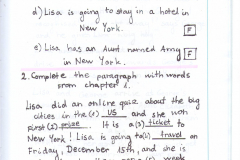 d) Lisa is going to stay in a hotel in
New York. F
e) Lisa has an Aunt named Anny F
in New York.
2. Complete the paragraph with words
from chapter 1.
Lisa did an online quiz about the big
cities in the (1) US and she won
first (2) prize. It is a (3) ticket to
New York! Lisa is going to (4) travel on
Friday, December 15th, and she is
weeks